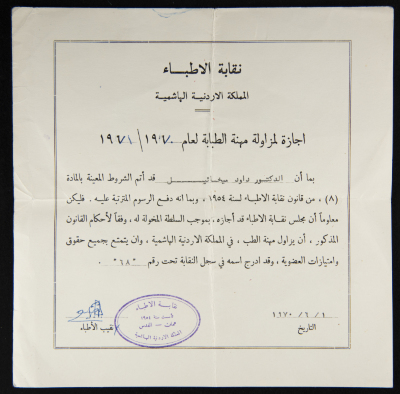 نقابة الاطباء
المملكة الاردنية الهاشمية
اجازة لمزاولة مهنة الطبابة لعام ١٩٧٠/١٩٧١
بما أن الدكتور داود ميخائيل قد أتم الشروط المعينة بالمادة
(٨) ، من قانون نقابة الاطباء لسنة ١٩٥٤ ، وبما انه دفع الرسوم المترتبة عليه . فليكن
معلوماً أن مجلس نقابة الاطباء قد أجازه ، بموجب السلطة المخولة له ، وفقاً لأحكام القانون
المذكور ، أن يزاول مهنة الطب ، في المملكة الاردنية الهاشمية ، وان يتمتع بجميع حقوق
وامتيازات العضوية ، وقد ادرج اسمه في سجل النقابة تحت رقم "٦٨" .
١ / ٦ / ١٩٧٠
التاريخ
نقابة الاطباء
عمان - القدس
المملكة الاردنية الهاشمية
نقيب الأطباء